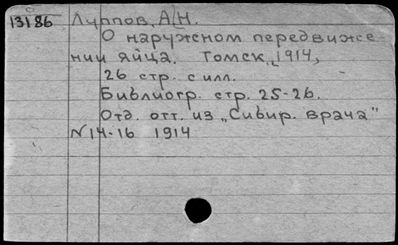 13186 Луппов, А.Н.
О наружном передвиже-
нии яйца. Томск, 1914,
26 стр. с илл.
Библиогр. стр. 25-26.
Отд. отт. из „Сибир. врача"
N14-16 1914